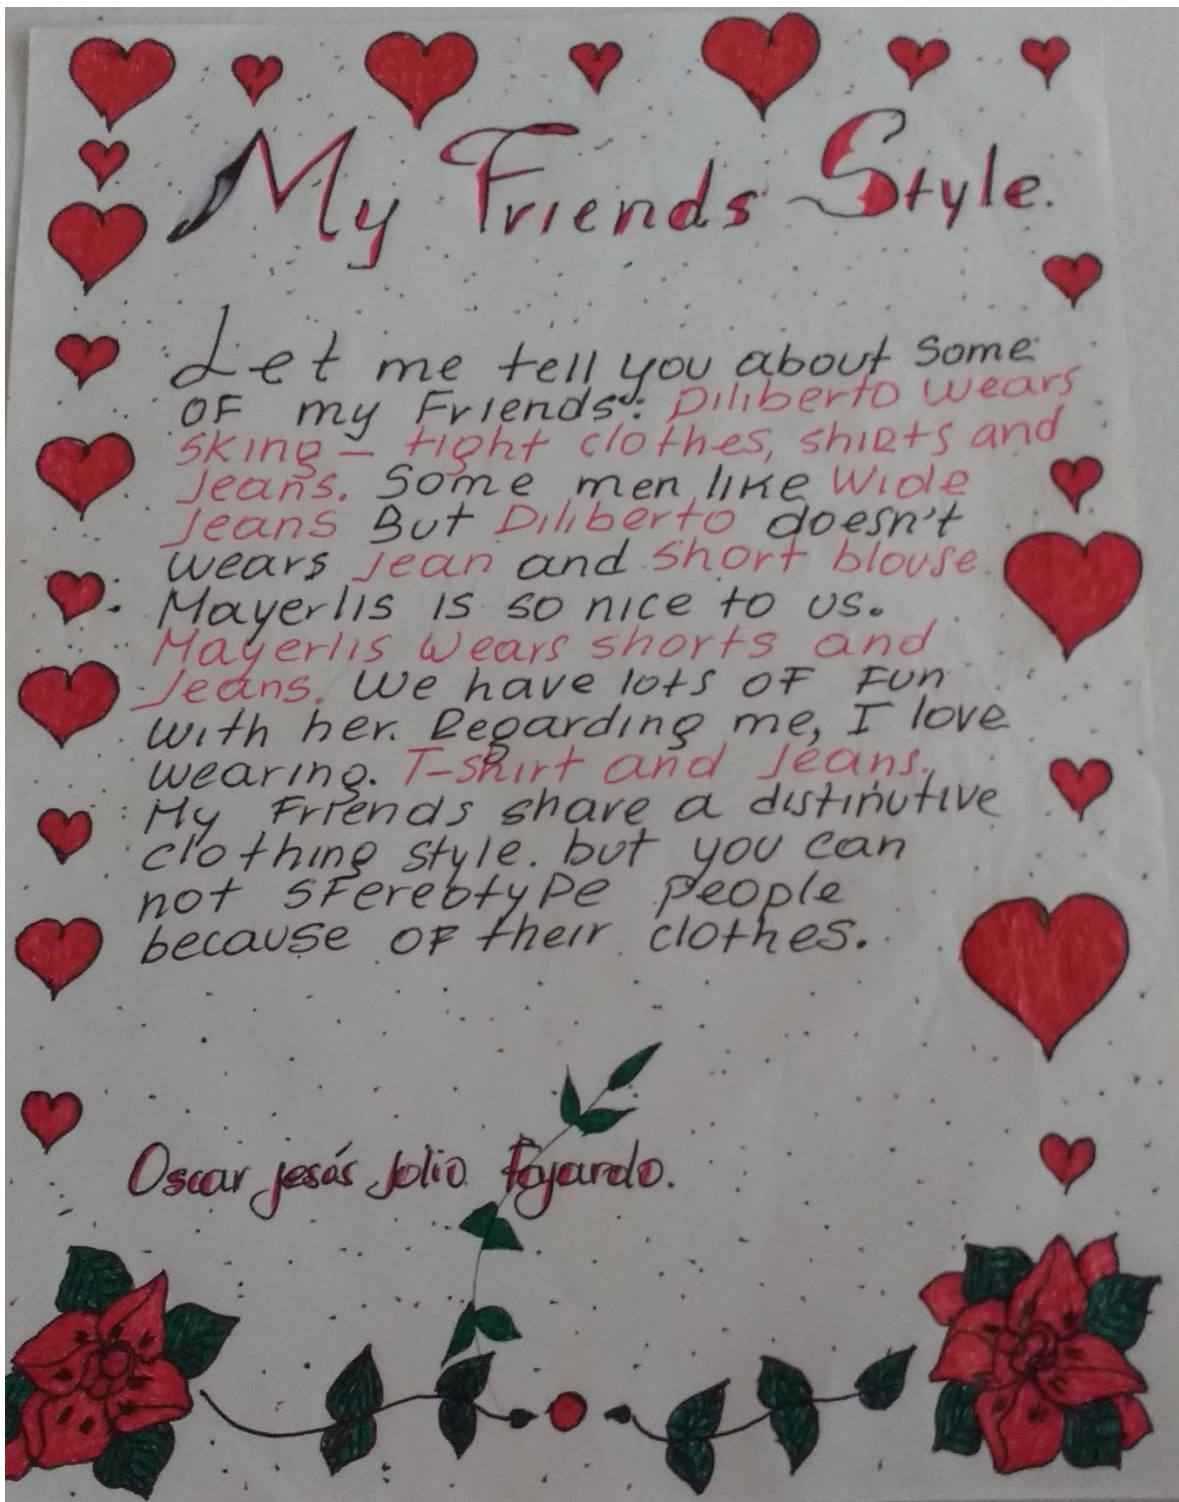 My Friends Style.
Let me tell you about some
OF my Friends: Diliberto wears
sking - tight clothes, shirts and
Jeans. Some men like Wide
Jeans But Diliberto doesn't
wears Jean and short blouse.
Mayerlis is so nice to us.
Mayerlis wears shorts and
Jeans. We have lots OF Fun
with her. Regarding me, I love
wearing. T-shirt and Jeans.
My Friends share a distinutive
clothing style. but you can
not sFereotype people
because OF their clothes.
Oscar jesús Jolio Fajardo.